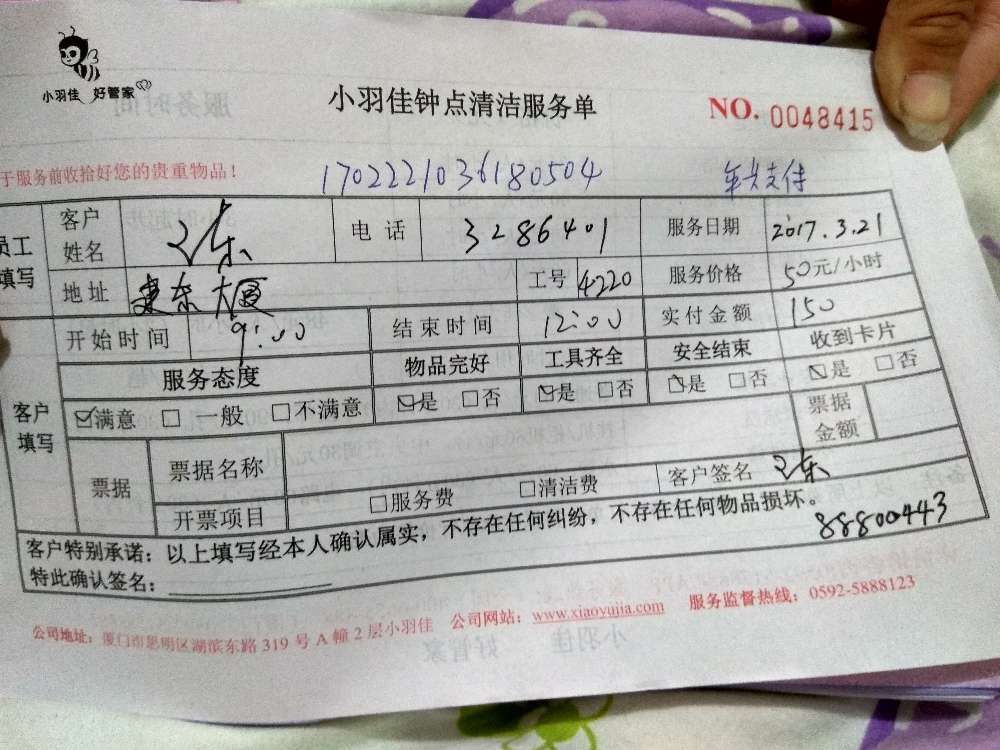 小羽佳 好管家
小羽佳钟点清洁服务单
NO. 0048415
于服务前收拾好您的贵重物品！
1702221036180504
支付
员工填写 客户姓名 电话 3286401 服务日期 2017.3.21
地址 建东大厦 工号 4220 服务价格 50元/小时
客户填写 开始时间 9:00 结束时间 12:00 实付金额 150
服务态度 物品完好 工具齐全 安全结束 收到卡片
☑满意 □一般 □不满意 ☑是 □否 ☑是 □否 ☑是 □否 ☑是 □否
票据 票据名称 票据金额
开票项目 □服务费 □清洁费 客户签名
客户特别承诺：以上填写经本人确认属实，不存在任何纠纷，不存在任何物品损坏。
88800443
特此确认签名：
公司地址：厦门市思明区湖滨东路319号A幢2层小羽佳 公司网站：www.xiaoyujia.com 服务监督热线：0592-5888123